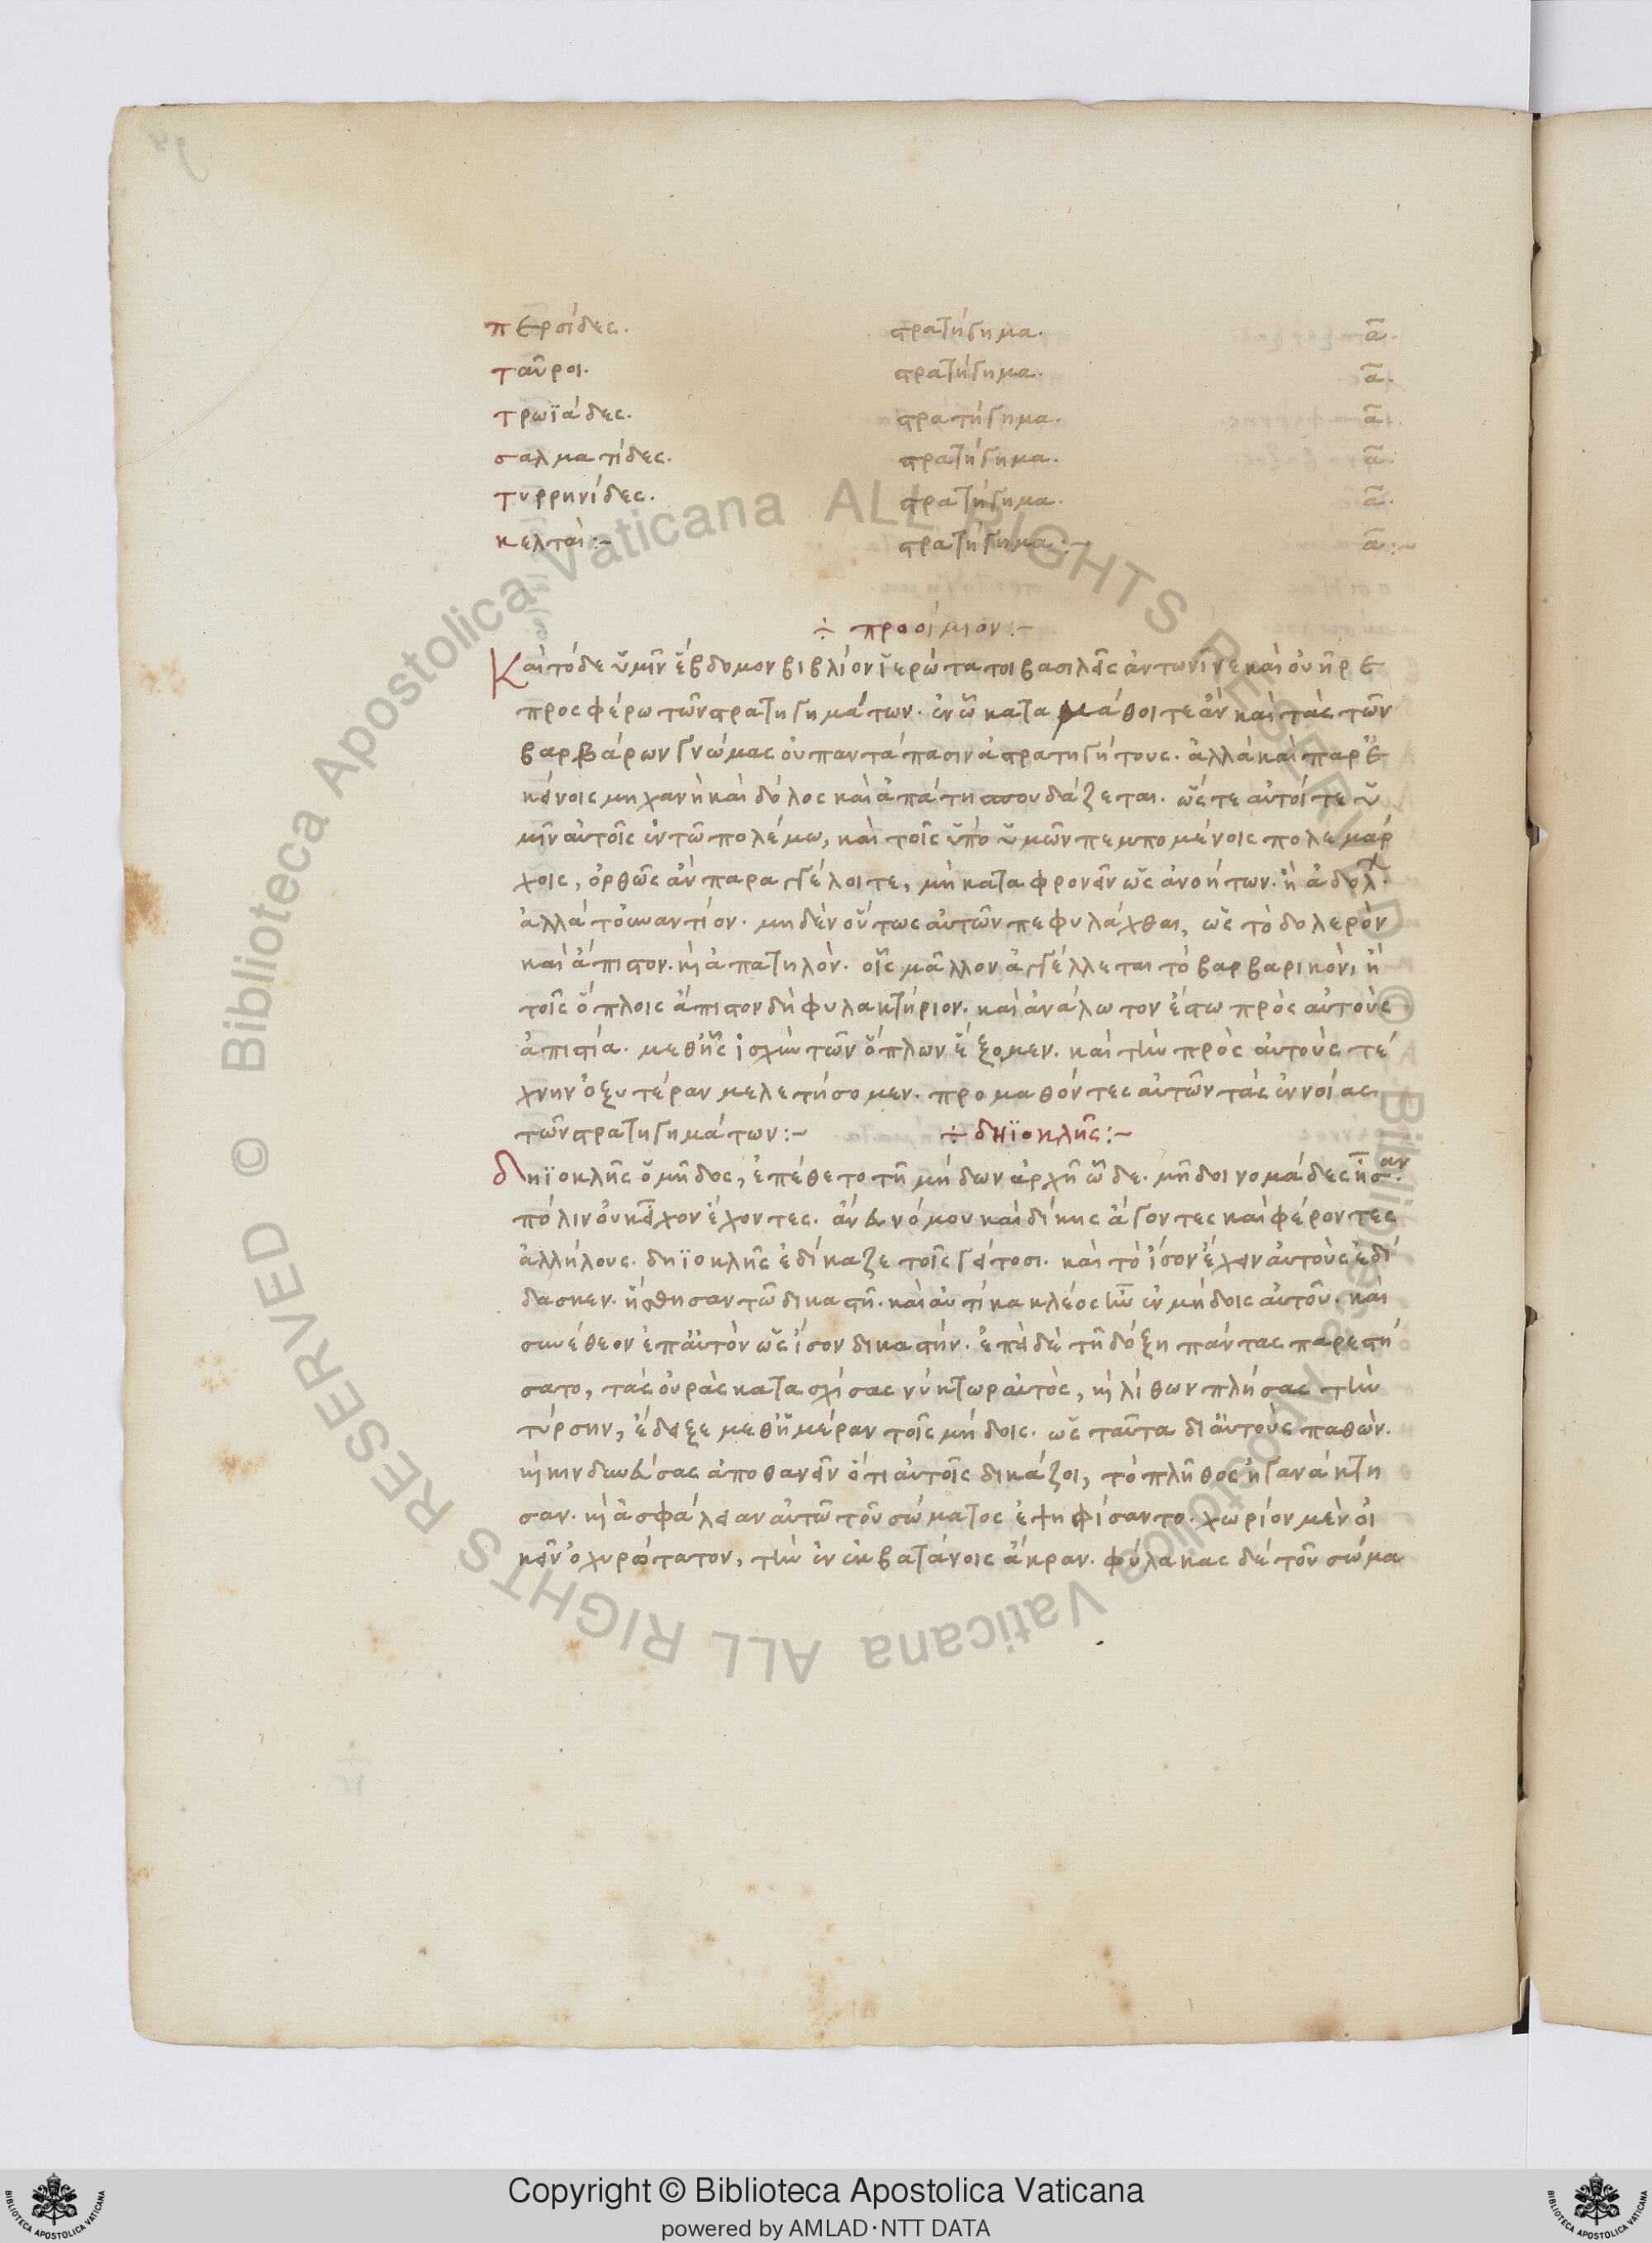 περσίδες. στρατήγημα. α̅.
ταῦροι. στρατήγημα. α̅.
τρωϊάδες. στρατήγημα. α̅.
σαλματίδες. στρατήγημα. α̅.
τυρρηνίδες. στρατήγημα. α̅.
κελταὶ:~ στρατήγημα:~ α̅:~
÷ προοίμιον:~
Καὶ τόδε ὑμῖν ἕβδομον βιβλίον ἱερώτατοι βασιλεῖς ἀντωνῖνε καὶ οὐῆρε
προσφέρω τῶν στρατηγημάτων. ἐν ᾧ καταμάθοιτε ἂν καὶ τὰς τῶν
βαρβάρων γνώμας οὐ παντάπασιν ἀστρατηγήτους. ἀλλὰ καὶ παρ' ἐ
κείνοις μηχανὴ καὶ δόλος καὶ ἀπάτη σπουδάζεται. ὥστε αὐτοί τε ὑ
μῖν αὐτοῖς ἐν τῶ πολέμω, καὶ τοῖς ὑπὸ ὑμῶν πεμπομένοις πολεμάρ
χοις, ὀρθῶς ἂν παραγγέλοιτε, μὴ καταφρονεῖν ὡς ἀνοήτων. ἢ ἀδόλ.
ἀλλὰ τὸ ἐναντίον. μηδὲν οὕτως αὐτῶν πεφυλάχθαι, ὡς τὸ δολερὸν
καὶ ἄπιστον. κὶ ἀπατηλὸν. οἷς μᾶλλον ἀγγέλλεται τὸ βαρβαρικὸν, ἢ
τοῖς ὅπλοις ἄπιστον δὴ φυλακτήριον. καὶ ἀνάλωτον ἔστω πρὸς αὐτοὺς
ἀπιστία. μεθ' ἧς ἰσχὺν τῶν ὅπλων ἕξομεν. καὶ τὴν πρὸς αὐτοὺς τέ
χνην ὀξυτέραν μελετήσομεν. προμαθόντες αὐτῶν τὰς ἐννοίας
τῶν στρατηγημάτων:~ ÷ δηϊοκλῆς:~
δηϊοκλῆς ὁ μῆδος, ἐπέθετο τῆ μήδων ἀρχῆ ὧδε. μῆδοι νομάδες ἦσαν.
πόλιν οὐκ εἶχον ἔχοντες. ἄνευ νόμου καὶ δίκης ἄγοντες καὶ φέροντες
ἀλλήλους. δηϊοκλῆς ἐδίκαζε τοῖς γείτοσι. καὶ τὸ ἴσον ἔχειν αὐτοὺς ἐδί
δασκεν. ἥσθησαν τῶ δικαστῆ. καὶ αὐτίκα κλέος ἦν ἐν μήδοις αὐτοῦ. καὶ
συνέθεον ἐπ' αὐτὸν ὡς ἴσον δικαστήν. ἐπεὶ δὲ τῆ δόξη πάντας παρεστή
σατο, τὰς οὐρὰς κατασχίσας νύκτωρ αὐτὸς, κὶ λίθων πλήσας τὴν
τύρσην, ἔδειξε μεθ' ἡμέραν τοῖς μήδοις. ὡς ταῦτα δι' αὐτοὺς παθὼν.
κὶ κινδυνεύσας ἀποθανεῖν ὅτι αὐτοῖς δικάζοι, τὸ πλῆθος ἠγανάκτη
σαν. κὶ ἀσφάλειαν αὐτῶ τοῦ σώματος ἐψηφίσαντο. χωρίον μὲν οἰ
κεῖν ὀχυρώτατον, τὴν ἐν ἐκβατάνοις ἄκραν. φύλακας δέ τοῦ σώμα
Biblioteca Apostolica Vaticana ALL RIGHTS RESERVED ©
Biblioteca Apostolica Vaticana ALL RIGHTS RESERVED ©
Copyright © Biblioteca Apostolica Vaticana
powered by AMLAD·NTT DATA
BIBLIOTECA APOSTOLICA VATICANA
BIBLIOTECA APOSTOLICA VATICANA